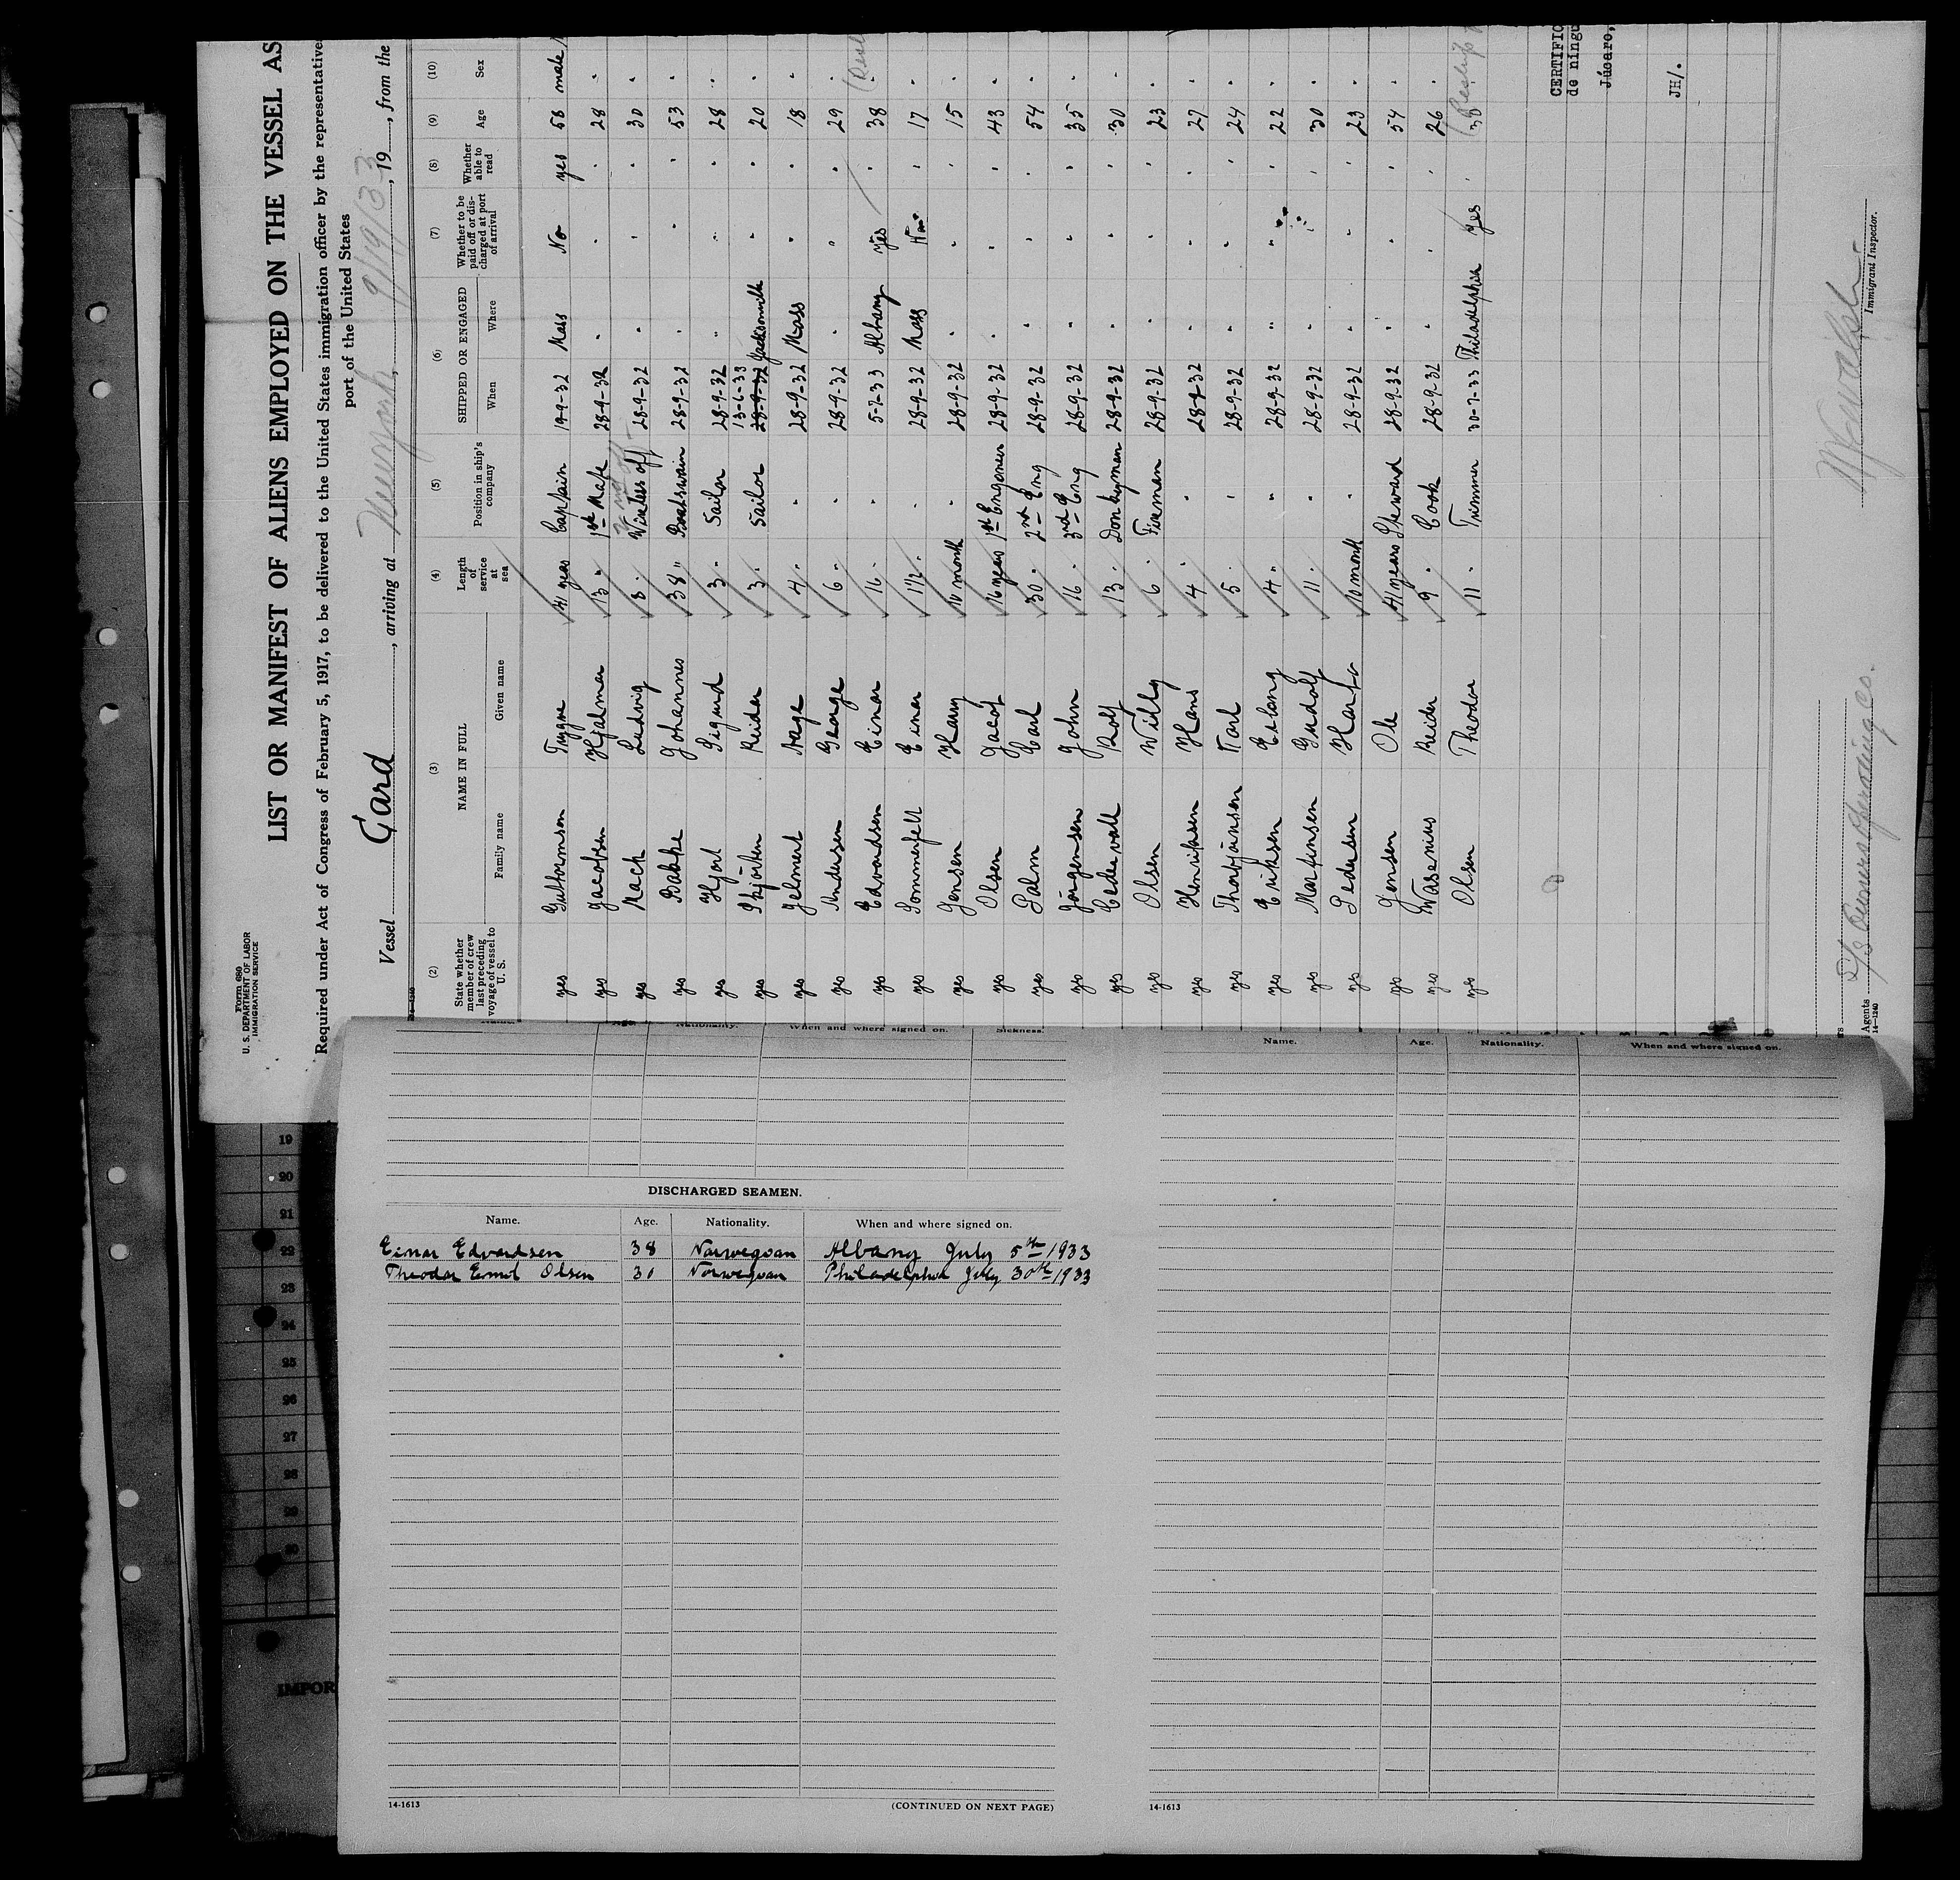 Form 680
U. S. DEPARTMENT OF LABOR
IMMIGRATION SERVICE
LIST OR MANIFEST OF ALIENS EMPLOYED ON THE VESSEL AS
Required under Act of Congress of February 5, 1917, to be delivered to the United States immigration officer by the representative
port of the United States
Vessel Gard, arriving at New York, 9/19/33, 19, from the
(2) (3) (4) (5) (6) (7) (8) (9) (10)
State whether member of crew last preceding voyage of vessel to U. S. NAME IN FULL Family name Given name Length of service at sea Position in ship's company SHIPPED OR ENGAGED When Where Whether to be paid off or discharged at port of arrival Whether able to read Age Sex
yes Guthormsen Trygve 41 years Captain 19-9-32 Mass No yes 56 male
yes Jacobsen Hjalmar 13 " 1st Mate 28-9-32 " " " 28 "
yes Mack Ludvig 8 " Wireless off 28-9-32 " " " 30 "
yes Bakke Johannes 38 " Boatswain 28-9-32 " " " 53 "
yes Hjort Sigurd 3 " Sailor 28-9-32 " " " 28 "
13-6-33
yes Skjörten Reidar 3 " Sailor 28-9-32 Jacksonville " " 20 "
yes Jelmert Aage 4 " " 28-9-32 Mass " " 18 "
yes Andersen George 6 " " 28-9-32 " " " 29 "
yes Edvardsen Einar 16 " " 5-7-33 Albany yes " 38 "
yes Sommerfelt Einar 1½ " " 28-9-32 Mass " 17 "
yes Jensen Harry 10 month " 28-9-32 " " " 15 "
yes Olsen Jacob 16 years 1st Engeneer 28-9-32 " " " 43 "
yes Palm Carl 30 " 2nd Eng 28-9-32 " " " 54 "
yes Jörgensen John 16 " 3rd Eng 28-9-32 " " " 35 "
yes Cedervall Rolf 13 " Donkyman 28-9-32 " " " 30 "
yes Olsen Willy 6 " Fireman 28-9-32 " " " 23 "
yes Henriksen Hans 4 " " 28-9-32 " " " 27 "
yes Thorbjörnsen Karl 5 " " 28-9-32 " " " 24 "
yes Eriksen Erling 4 " " 28-9-32 " " " 22 "
yes Martinsen Gudolf 11 " " 28-9-32 " " " 30 "
yes Pedersen 10 month " 28-9-32 " " " 23 "
yes Jensen Ole 41 years Steward 28-9-32 " " " 54 "
yes Wasenius Reidar 9 " Cook 28-9-32 " " " 26 "
yes Olsen Theodor 11 " Trimmer 30-7-33 Philadelphia yes " 30
CERTIFIC
de ningu
Júcaro,
JH/.
Immigrant Inspector.
Agents
14—1240
Name. Age. Nationality. When and where signed on. Sickness.
DISCHARGED SEAMEN.
Name. Age. Nationality. When and where signed on.
Einar Edvardsen 38 Norwegian Albany July 5th 1933
Theodor Emil Olsen 30 Norwegian Philadelphia July 30th 1933
14-1613
(CONTINUED ON NEXT PAGE)
Name. Age. Nationality. When and where signed on.
14-1613
19
20
21
22
23
24
25
26
27
28
29
30
IMPOR